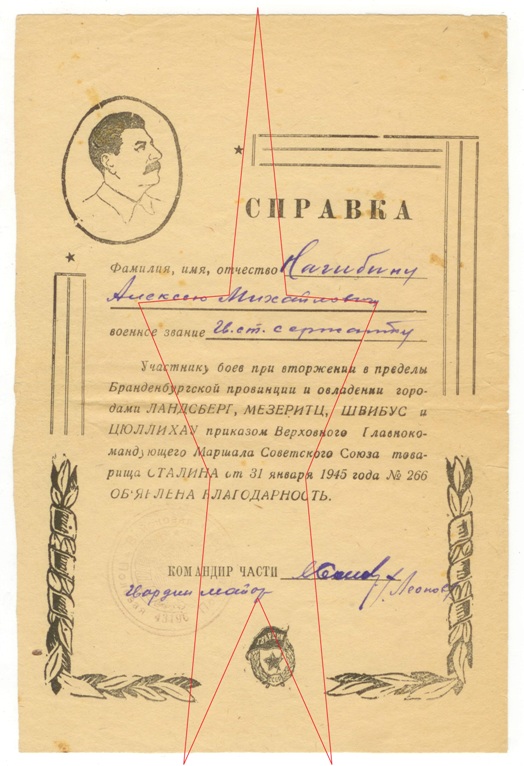 СПРАВКА
Фамилия, имя, отчество Нагибину
Алексею Михайловичу
военное звание Гв. ст. сержанту
Участнику боев при вторжении в пределы
Бранденбургской провинции и овладении горо-
дами ЛАНДСБЕРГ, МЕЗЕРИТЦ, ШВИБУС и
ЦЮЛЛИХАУ приказом Верховного Главноко-
мандующего Маршала Советского Союза това-
рища СТАЛИНА от 31 января 1945 года № 266
ОБ'ЯВЛЕНА БЛАГОДАРНОСТЬ.
КОМАНДИР ЧАСТИ
Гвардии майор Леонов
ГВАРДИЯ